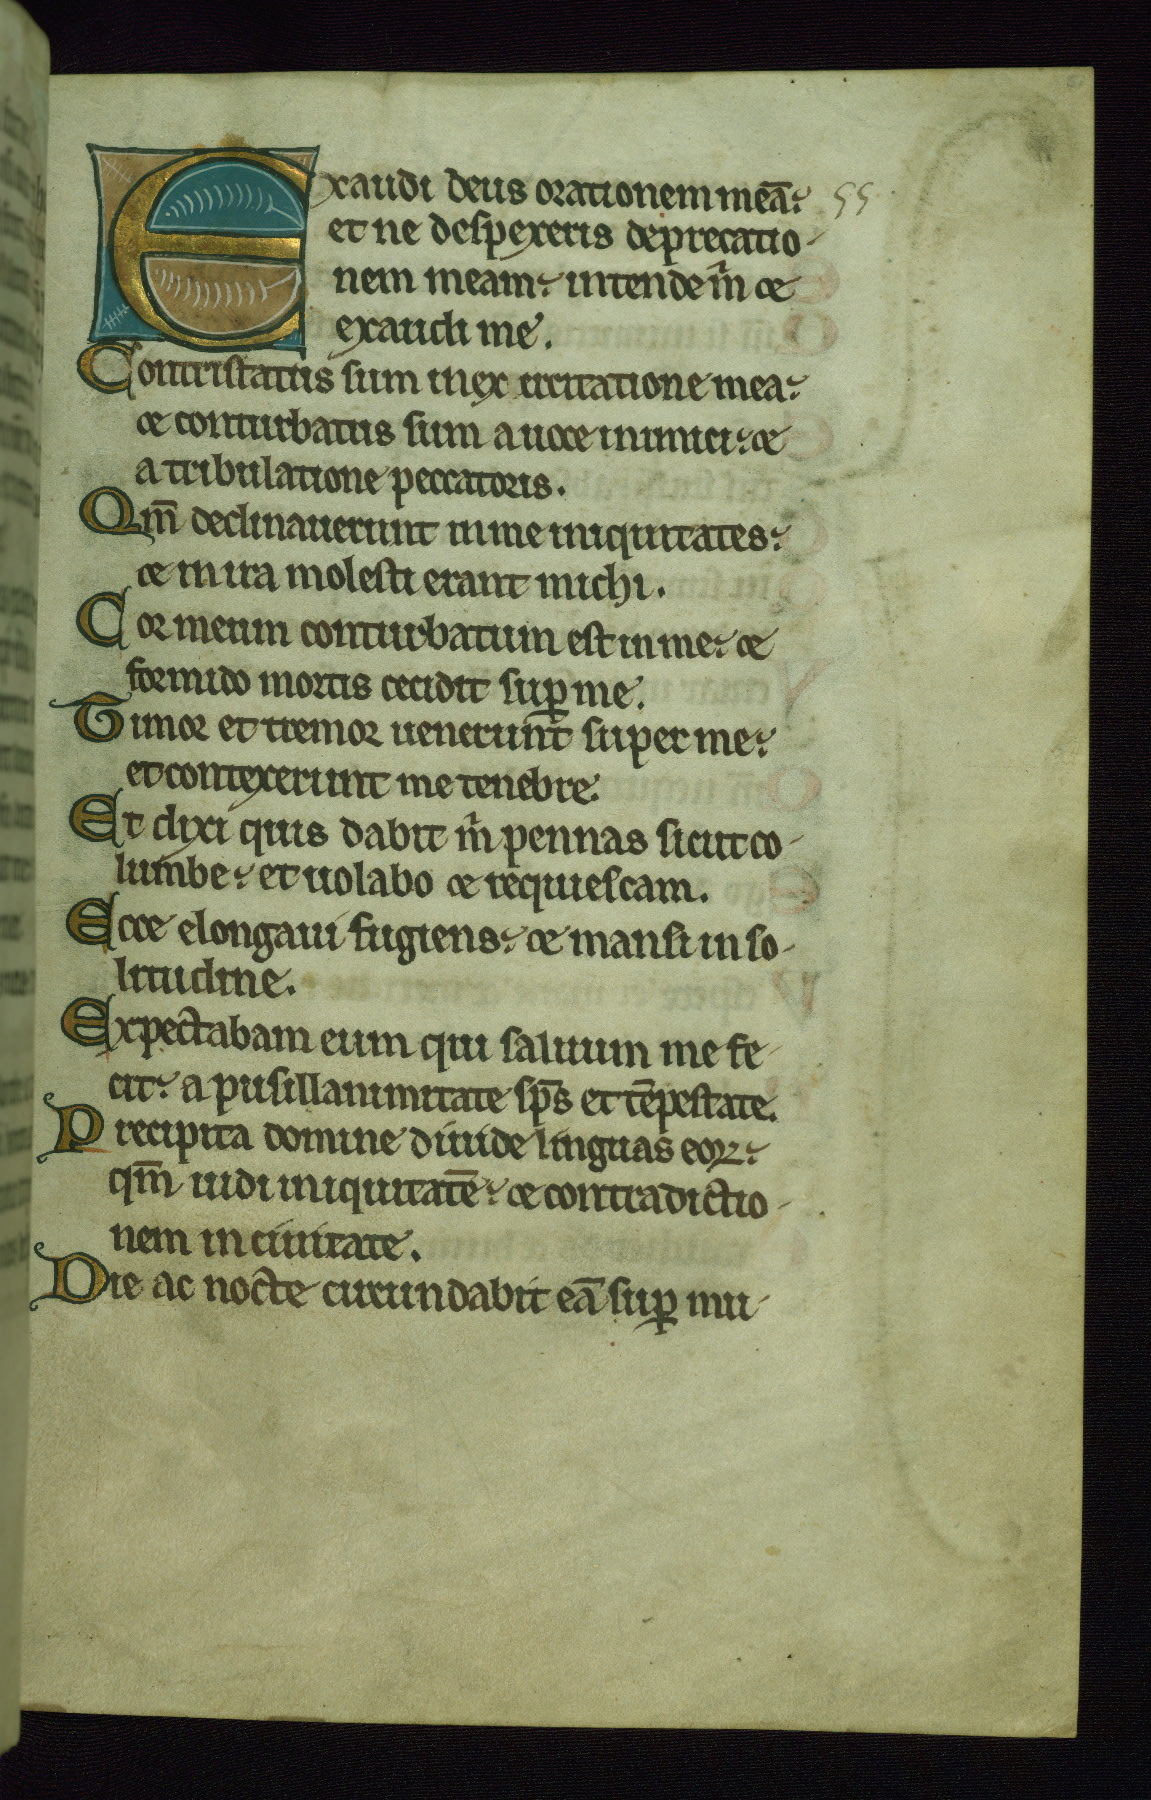 Exaudi deus orationem meā: 55
et ne despexeris deprecatio
nem meam: intende m̄ et
exaudi me.
Contristatus sum in exercitatione mea:
et conturbatus sum a uoce inimici: et
a tribulatione peccatoris.
Qm̄ declinauerunt in me iniquitates:
et in ira molesti erant michi.
Cor meum conturbatum est in me: et
formido mortis cecidit sup̄ me.
Timor et tremor uenerunt super me:
et contexerunt me tenebre.
Et dixi quis dabit m̄ pennas sicut co
lumbe: et uolabo et requiescam.
Ecce elongaui fugiens: et mansi in so
litudine.
Expectabam eum qui saluum me fe
cit: a pusillanimitate sp̄s et tēpestate.
Precipita domine diuide linguas eoꝝ:
qm̄ uidi iniquitatē: et contradictio
nem in ciuitate.
Die ac nocte circundabit eā sup̄ mu